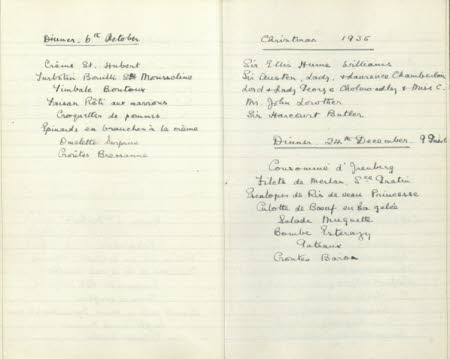 Dinner. 6th October
Crême St. Hubert
Turbotin Bouilli Sce Mousseline
Timbale
Faisan Rôti aux marrons
Croquettes de pommes
Epinards en branches à la crême
Omelette Surprise
Croûtes Bressanne
Christmas 1936
Sir Ellis Hume Williams
Sir Austen, Lady, & Laurence Chamberlain
Lord & Lady George Cholmondley & Miss C.
Mr. John Lowther
Sir Harcourt Butler
Dinner. 24th December. 9
Consommé d'
Filets de Merlan, Sce
Escalopes de Ris de veau Princesse
Culotte de Boeuf en la gelée
Salade Muguette
Bombe Esterazy
Gateaux
Croutes Baron